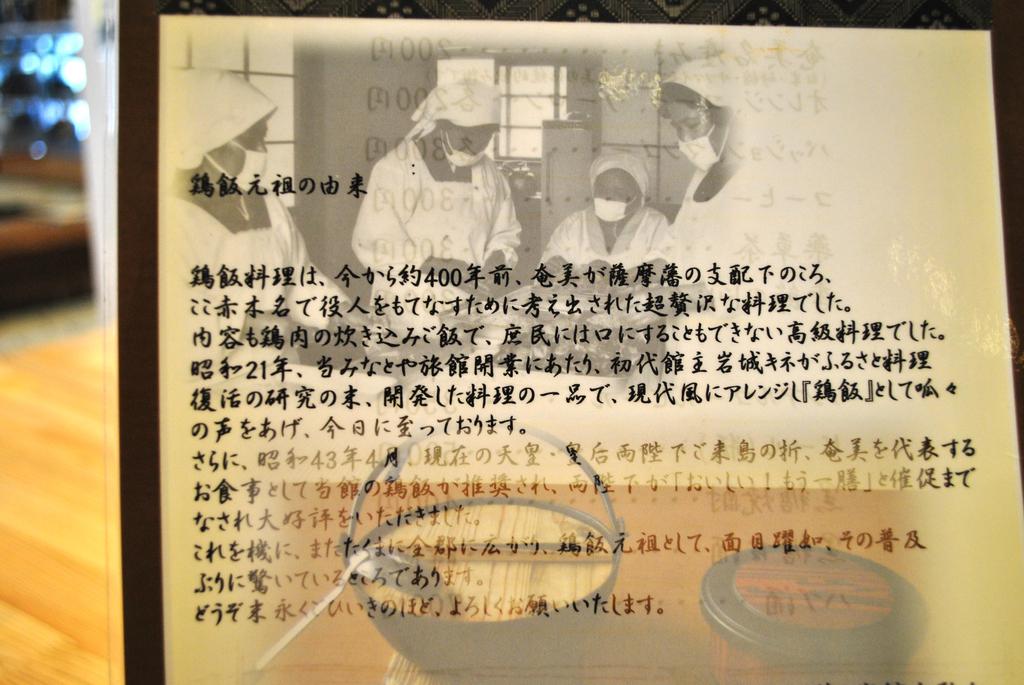 鶏飯元祖の由来
鶏飯料理は、今から約400年前、奄美が薩摩藩の支配下のころ、
ここ赤木名で役人をもてなすために考え出された超贅沢な料理でした。
内容も鶏肉の炊き込みご飯で、庶民には口にすることもできない高級料理でした。
昭和21年、当みなとや旅館開業にあたり、初代館主岩城キネがふるさと料理
復活の研究の末、開発した料理の一品で、現代風にアレンジし『鶏飯』として呱々
の声をあげ、今日に至っております。
さらに、昭和43年4月、現在の天皇・皇后両陛下ご来島の折、奄美を代表する
お食事として当館の鶏飯が推奨され、両陛下が「おいしい！もう一膳」と催促まで
なされ大好評をいただきました。
これを機に、またたくまに全郡に広がり、鶏飯元祖として、面目躍如、その普及
ぶりに驚いているところであります。
どうぞ末永くごひいきのほど、よろしくお願いいたします。